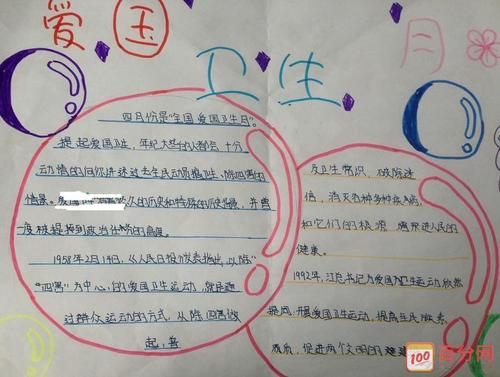 爱国
卫生
月
四月份是“全国爱国卫生月”。
提起爱国卫生，年纪大些的人都会十分
动情的向你讲述过去全民动员搞卫生、除四害的
情景。
的历史和特殊的历史背景，并曾一
度被提提到政治任务的高度。
1958年2月14日，《人民日报》发表指出，以除
“四害”为中心，的爱国卫生运动，就是通
过群众运动的方式，从除四害做
起，普
及卫生常识，破除迷
信，消灭各种多种疾病
和它们的根源，增进人民的
健康。
1992年，江总书记为爱国卫生运动欣然
提词，开展爱国卫生运动，提高全民族素
质，促进两个文明的建
100
百分网